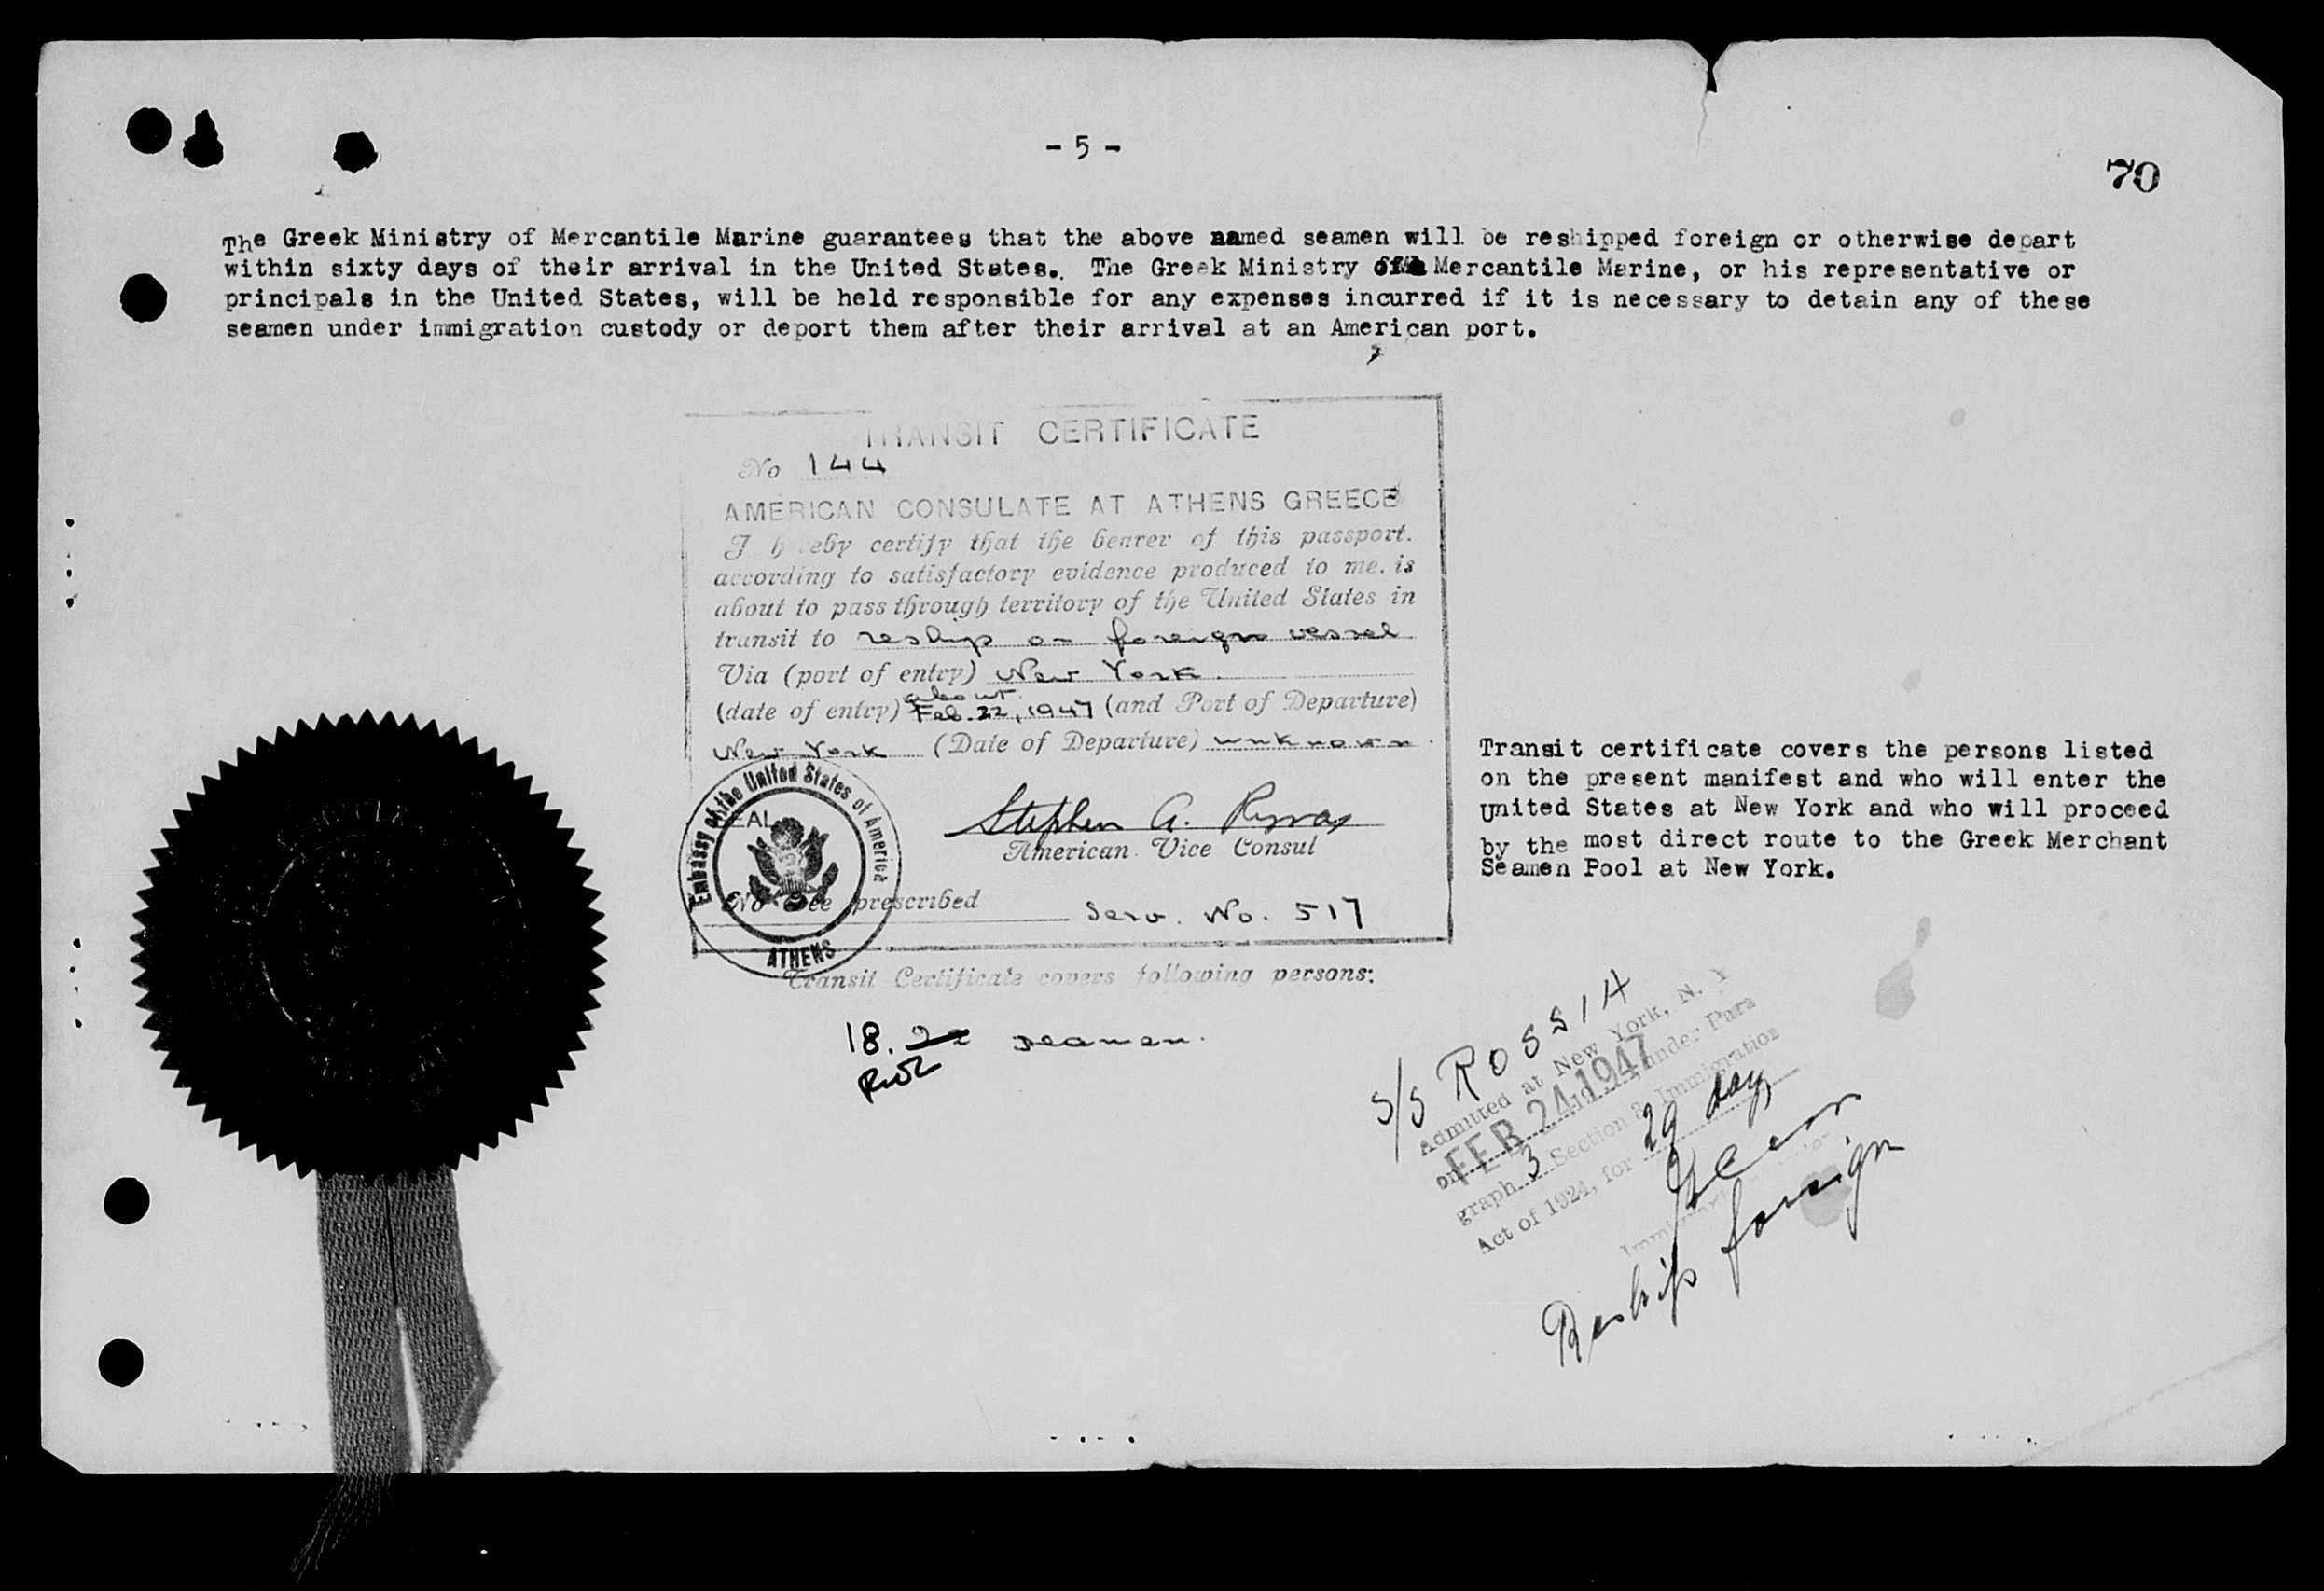 - 5 -
70
The Greek Ministry of Mercantile Marine guarantees that the above named seamen will be reshipped foreign or otherwise depart
within sixty days of their arrival in the United States. The Greek Ministry of Mercantile Marine, or his representative or
principals in the United States, will be held responsible for any expenses incurred if it is necessary to detain any of these
seamen under immigration custody or deport them after their arrival at an American port.
TRANSIT CERTIFICATE
No 144
AMERICAN CONSULATE AT ATHENS GREECE
I hereby certify that the bearer of this passport.
according to satisfactory evidence produced to me. is
about to pass through territory of the United States in
transit to reship on foreign vessel
Via (port of entry) New York.
about
(date of entry) Feb. 22, 1947 (and Port of Departure)
New York (Date of Departure) unknown.
Embassy of the United States of America
ATHENS
Stephen A.
American Vice Consul
No Fee prescribed
Serv. No. 517
Transit Certificate covers following persons:
18. seamen.
Transit certificate covers the persons listed
on the present manifest and who will enter the
United States at New York and who will proceed
by the most direct route to the Greek Merchant
Seamen Pool at New York.
S/S ROSSIA
Admitted at New York, N. Y
on FEB 24 1947 19 under Para
graph 3 Section 3 Immigration
Act of 1924, for 29 days
Reship foreign